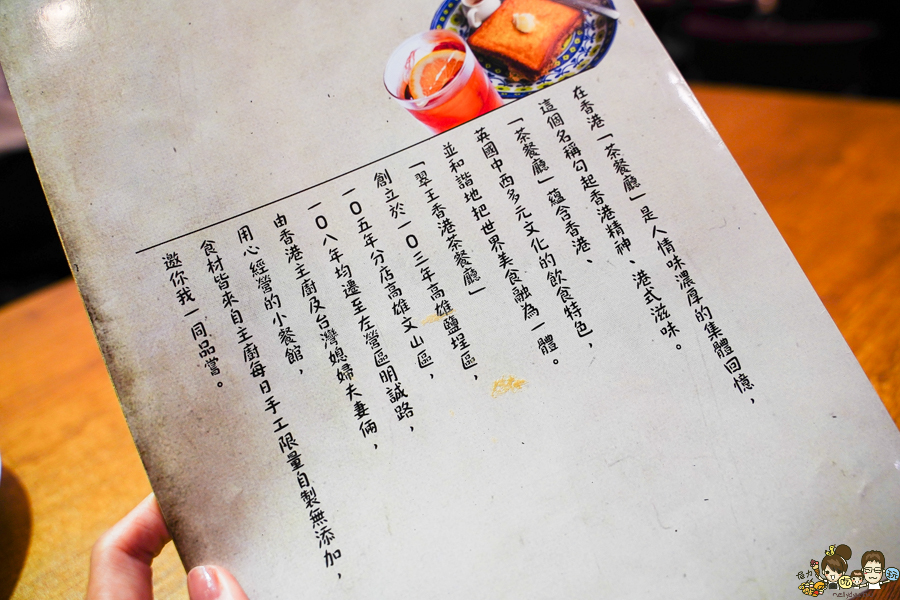 在香港「茶餐廳」是人情味濃厚的集體回憶，
這個名稱勾起香港精神、港式滋味。
「茶餐廳」蘊含香港、
英國中西多元文化的飲食特色，
並和諧地把世界美食融為一體。
「翠王香港茶餐廳」
創立於一０三年高雄鹽埕區，
一０五年分店高雄文山區，
一０八年均遷至左營區明誠路，
由香港主廚及台灣媳婦夫妻倆，
用心經營的小餐館，
食材皆來自主廚每日手工限量自製無添加，
邀你我一同品嘗。